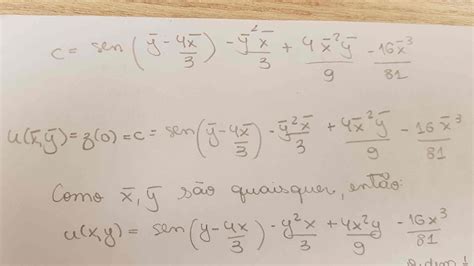 c = sen(ȳ - 4x̄/3) - ȳ²x̄/3 + 4x̄²ȳ/9 - 16x̄³/81
u(x̄,ȳ) = z(0) = c = sen(ȳ - 4x̄/3) - ȳ²x̄/3 + 4x̄²ȳ/9 - 16x̄³/81
Como x̄, ȳ são quaisquer, então:
u(x,y) = sen(y - 4x/3) - y²x/3 + 4x²y/9 - 16x³/81